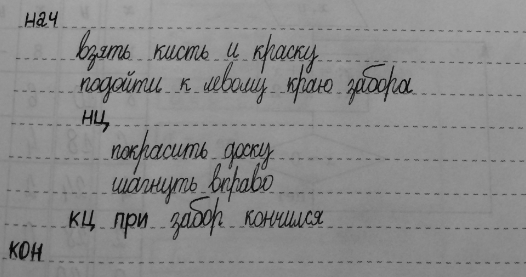 нач
взять кисть и краску
подойти к левому краю забора
нц
покрасить доску
шагнуть вправо
кц при забор кончился
кон